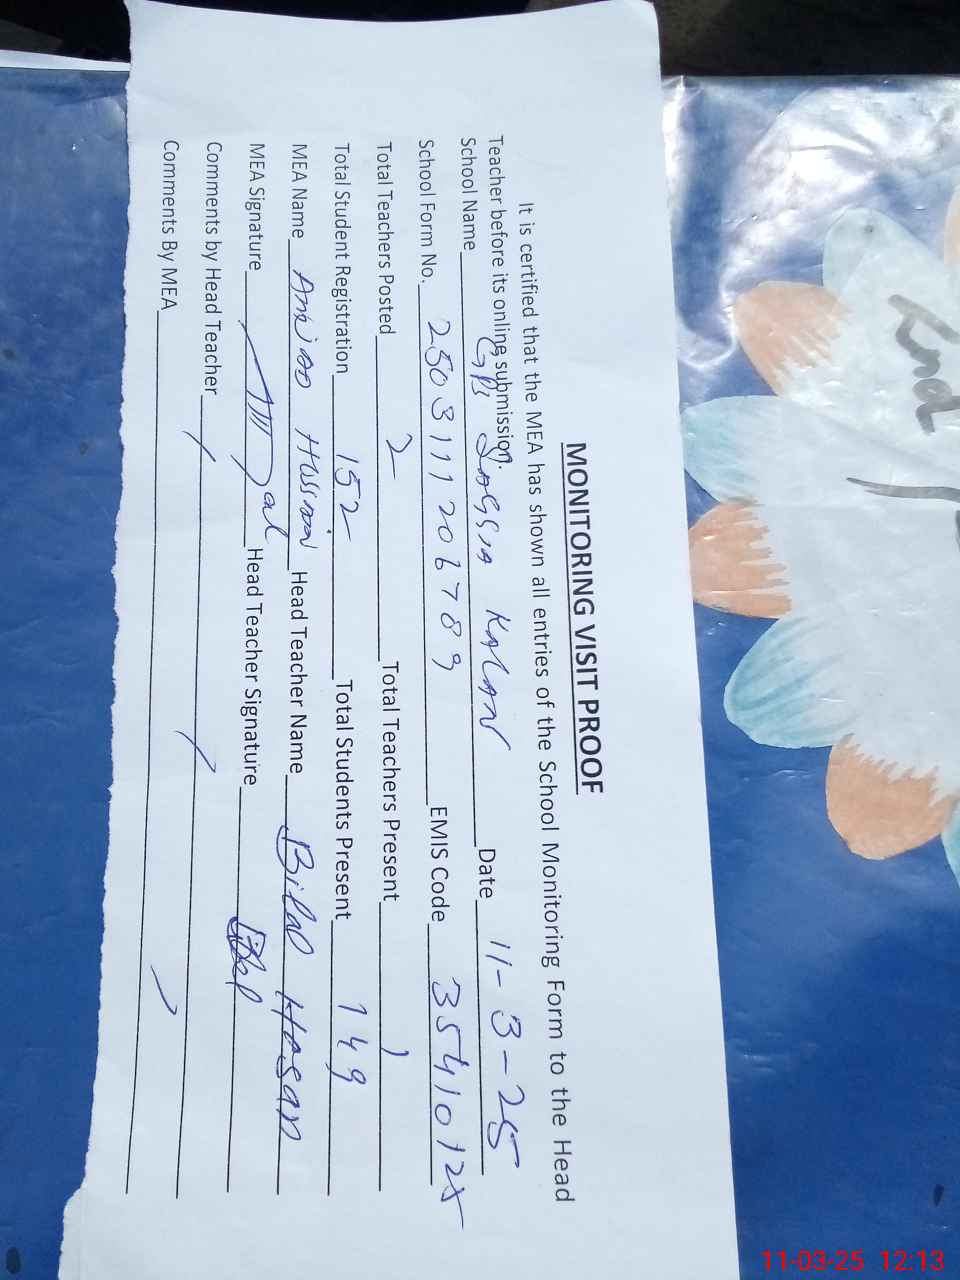 MONITORING VISIT PROOF
It is certified that the MEA has shown all entries of the School Monitoring Form to the Head
Teacher before its online submission.
School Name GPS KALAN Date 11-3-25
School Form No. 2503111206789 EMIS Code 3541012
Total Teachers Posted 2 Total Teachers Present 1
Total Student Registration 152 Total Students Present 149
MEA Name Hussain Head Teacher Name Bilal Hasan
MEA Signature Head Teacher Signature
Comments by Head Teacher
Comments By MEA
End
11-03-25 12:13